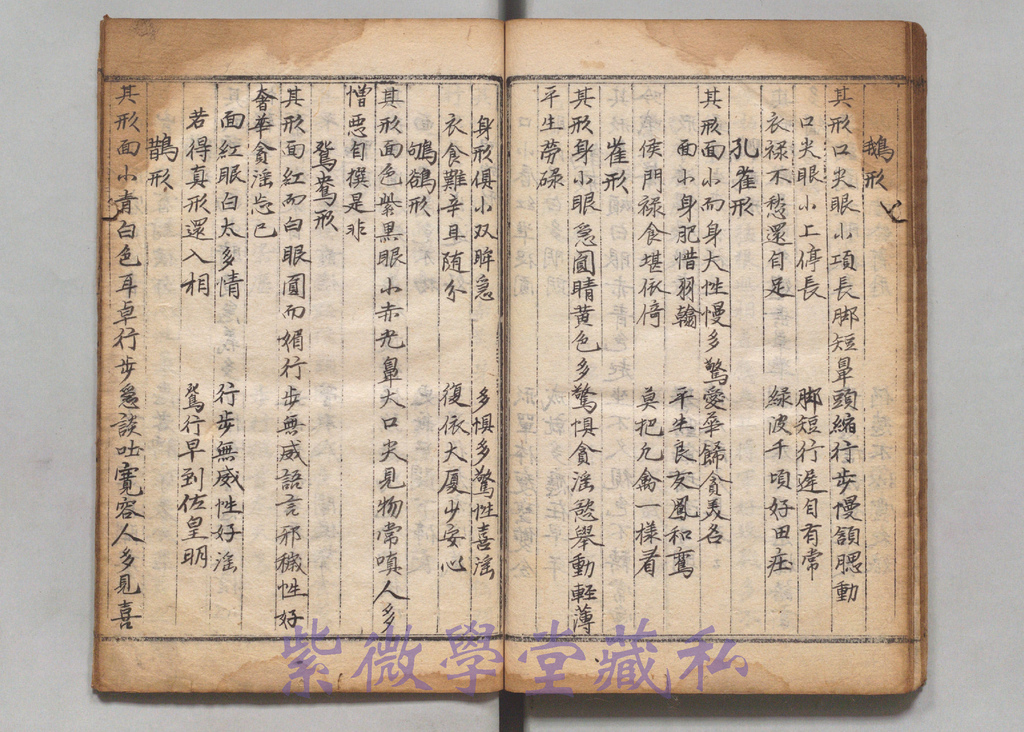 鵝形
其形口尖眼小項長脚短鼻頭縮行步慢頷腮動
口尖眼小上停長 脚短行遲自有常
衣祿不愁還自足 綠波千頃好田庄
孔雀形
其形面小而身大性慢多驚愛華歸貪美名
面小身肥惜羽翰 平生良友鳳和鸞
侯門祿食堪依倚 莫把凡禽一樣看
雀形
其形身小眼急圓睛黃色多驚惧貪淫愁舉動輕薄
平生勞碌
身形俱小双眸急 多惧多驚性喜淫
衣食難辛且随分 復依大厦少安心
鴝鵒形
其形面色紫黑眼小赤光鼻大口尖見物常嗔人多
憎惡自撰是非
鴛鴦形
其形面紅而白眼圓而媚行步無威語言邪穢性好
奢華貪淫忘己
面紅眼白太多情 行步無威性好淫
若得真形還入相 鴛行早到佐皇明
鵲形
其形面小青白色耳卓行步急談吐寬容人多見喜
紫微學堂藏私